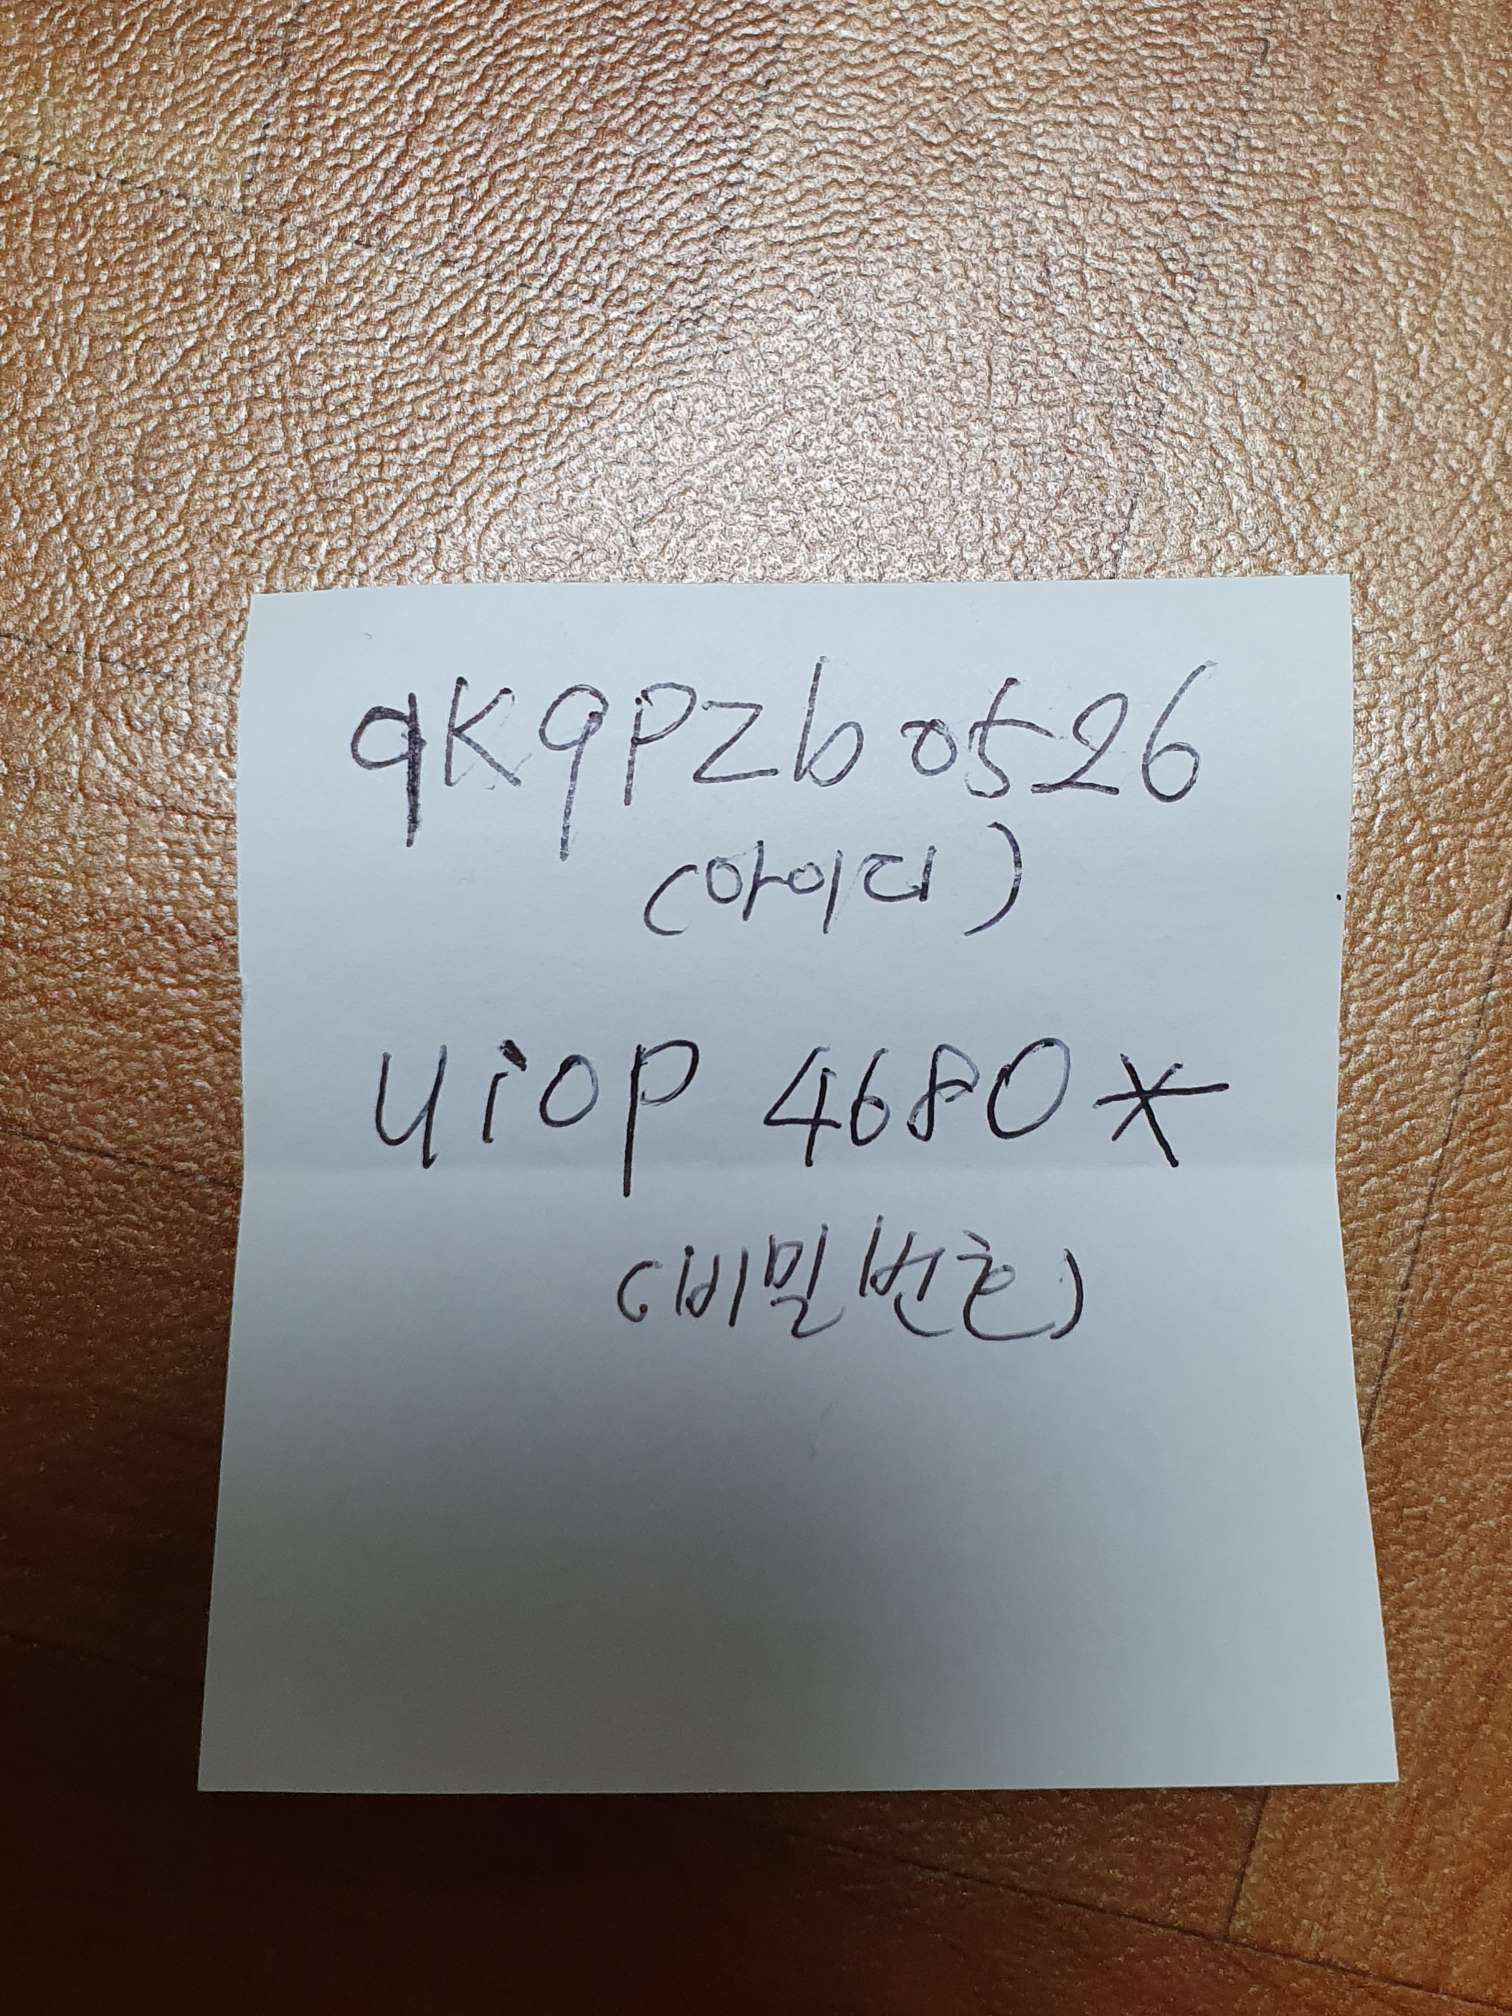 qkqpzb0526
(아이디)
uiop 4680*
(비밀번호)